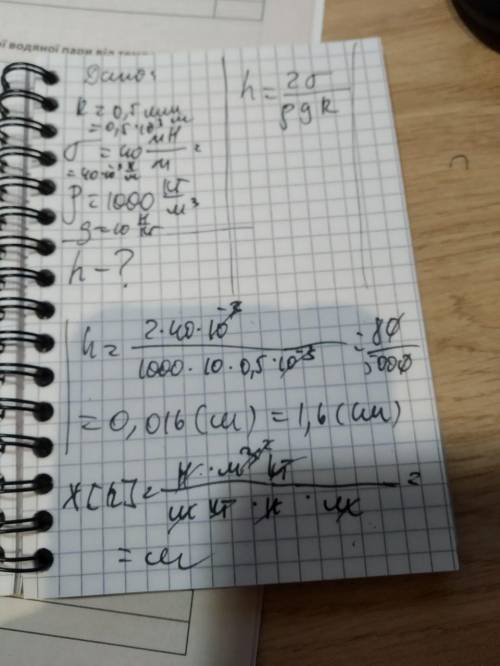 ої водяної пари від
Дано:
R = 0,5 мм
= 0,5·10⁻³ м
σ = 40 мН/м =
= 40·10⁻³ Н/м
ρ = 1000 кг/м³
g = 10 Н/кг
h - ?
h = 2σ/ρgR
h = 2·40·10⁻³/1000·10·0,5·10⁻³ = 80/5000
= 0,016 (м) = 1,6 (см)
X[h] = Н·м³·кг/м·кг·Н·м =
= м